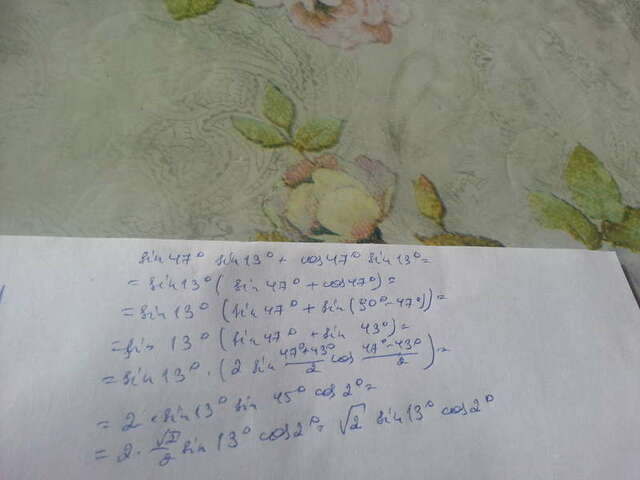 sin 47° sin 13° + cos 47° sin 13° =
= sin 13° ( sin 47° + cos 47°) =
= sin 13° (sin 47° + sin (90° - 47°)) =
= sin 13° (sin 47° + sin 43°) =
= sin 13° · (2 sin (47°+43°)/2 cos (47°-43°)/2) =
= 2 · sin 13° sin 45° cos 2° =
= 2 · √2/2 sin 13° cos 2° = √2 sin 13° cos 2°